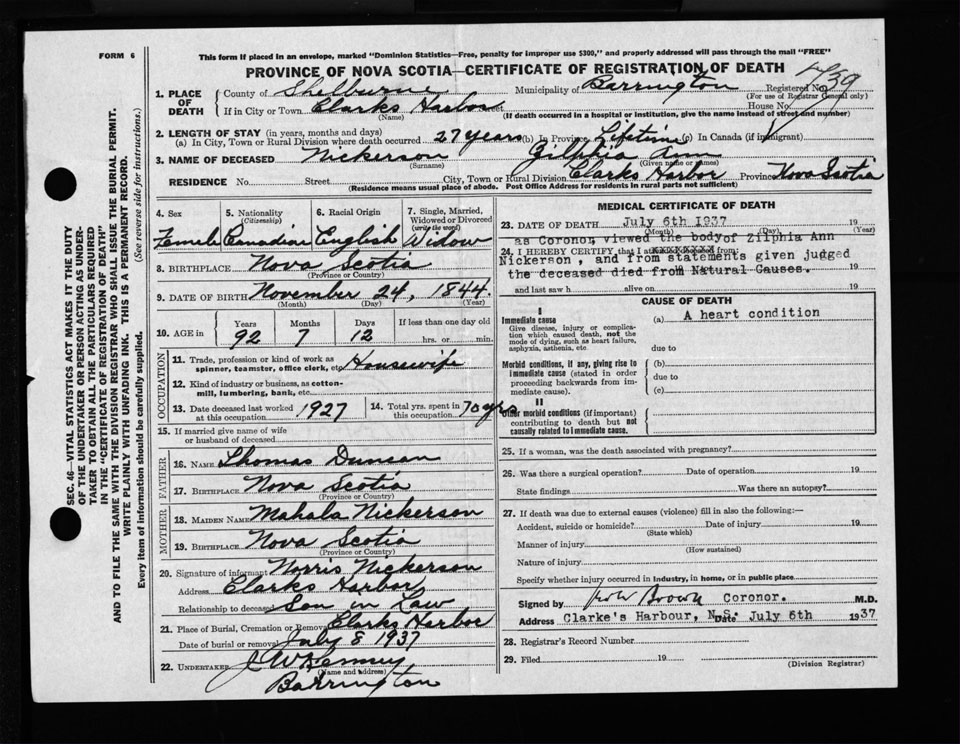 FORM 6
This form if placed in an envelope, marked "Dominion Statistics—Free, penalty for improper use $300," and properly addressed will pass through the mail "FREE"
PROVINCE OF NOVA SCOTIA—CERTIFICATE OF REGISTRATION OF DEATH
SEC. 46—VITAL STATISTICS ACT MAKES IT THE DUTY
OF THE UNDERTAKER OR PERSON ACTING AS UNDER-
TAKER TO OBTAIN ALL THE PARTICULARS REQUIRED
IN THE "CERTIFICATE OF REGISTRATION OF DEATH"
AND TO FILE THE SAME WITH THE DIVISION REGISTRAR WHO SHALL ISSUE THE BURIAL PERMIT.
WRITE PLAINLY WITH UNFADING INK. THIS IS A PERMANENT RECORD.
Every item of information should be carefully supplied. (See reverse side for instructions.)
1. PLACE OF DEATH County of Shelburne Municipality of Barrington Registered No. 739
(For use of Registrar General only)
If in City or Town Clarks Harbor Street House No.
(Name) (If death occurred in a hospital or institution, give the name instead of street and number)
2. LENGTH OF STAY (in years, months and days)
(a) In City, Town or Rural Division where death occurred 27 years (b) In Province Lifetime (c) In Canada (if immigrant)
3. NAME OF DECEASED Nickerson Zilphia Ann
(Surname) (Given name or names)
RESIDENCE No. Street City, Town or Rural Division Clarks Harbor Province Nova Scotia
(Residence means usual place of abode. Post Office Address for residents in rural parts not sufficient)
4. Sex 5. Nationality (Citizenship) 6. Racial Origin 7. Single, Married, Widowed or Divorced (write the word)
Female Canadian English Widow
8. BIRTHPLACE Nova Scotia
(Province or Country)
9. DATE OF BIRTH November 24, 1844
(Month) (Day) (Year)
10. AGE in Years Months Days If less than one day old
92 7 12 hrs. or min.
OCCUPATION
11. Trade, profession or kind of work as spinner, teamster, office clerk, etc. Housewife
12. Kind of industry or business, as cotton-mill, lumbering, bank, etc.
13. Date deceased last worked at this occupation 1927 14. Total yrs. spent in this occupation 70 yrs
15. If married give name of wife or husband of deceased
FATHER
16. NAME Thomas Duncan
17. BIRTHPLACE Nova Scotia
(Province or Country)
MOTHER
18. MAIDEN NAME Mahala Nickerson
19. BIRTHPLACE Nova Scotia
(Province or Country)
20. Signature of informant Norris Nickerson
Address Clarks Harbor
Relationship to deceased Son in Law
21. Place of Burial, Cremation or Removal Clarks Harbor
Date of burial or removal July 8 1937
22. UNDERTAKER J W Kenney
(Name and address)
Barrington
MEDICAL CERTIFICATE OF DEATH
23. DATE OF DEATH July 6th 1937 19
(Month) (Day) (Year)
as Coronor, viewed the body of Zilphia Ann
24. I HEREBY CERTIFY that I from
Nickerson, and from statements given judged
the deceased died from Natural Causes.
and last saw h alive on 19
CAUSE OF DEATH
I
Immediate cause (a) A heart condition
Give disease, injury or complication which caused death, not the mode of dying, such as heart failure, asphyxia, asthenia, etc.
due to
Morbid conditions, if any, giving rise to immediate cause (stated in order proceeding backwards from immediate cause).
(b)
due to
(c)
II
Other morbid conditions (if important) contributing to death but not causally related to immediate cause.
25. If a woman, was the death associated with pregnancy?
26. Was there a surgical operation? Date of operation 19
State findings Was there an autopsy?
27. If death was due to external causes (violence) fill in also the following:—
Accident, suicide or homicide? Date of injury 19
(State which)
Manner of injury
(How sustained)
Nature of injury
Specify whether injury occurred in industry, in home, or in public place
Signed by Brown Coronor. M.D.
Address Clarke's Harbour, N.S. Date July 6th 1937
28. Registrar's Record Number
29. Filed 19
(Division Registrar)